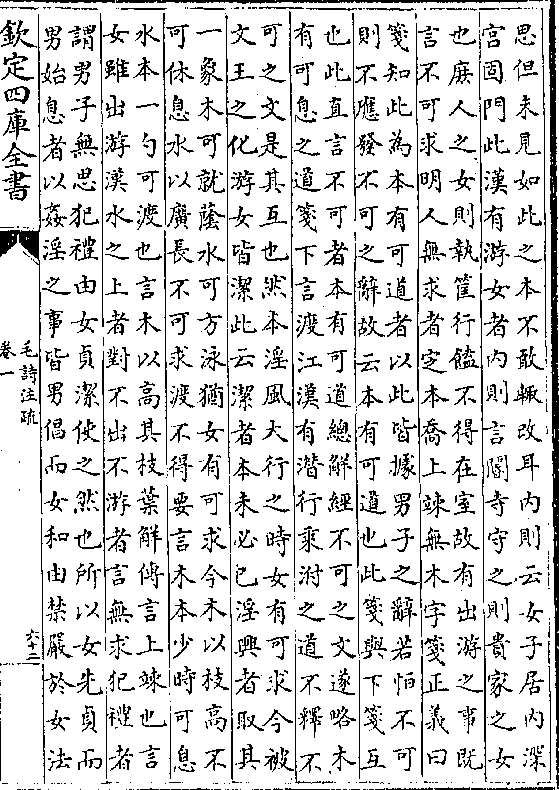 思但未見如此之本不敢輙改耳内則云女子居内深
宫固門此漢有游女者内則言閽寺守之則貴家之女
也庶人之女則執筐行饁不得在室故有出游之事既
言不可求明人無求者定本喬上竦無木字箋正義曰
箋知此為本有可道者以此皆據男子之辭若怕不可
則不應發不可之辭故云本有可道也此箋與下箋互
也此直言不可者本有可道總解經不可之文遂略木
有可息之道箋下言渡江漢有潛行乗泭之道不釋不
可之文是其互也然本淫風大行之時女有可求今被
文王之化游女皆潔此云潔者本未必已淫興者取其
一象木可就蔭水可方泳猶女有可求今木以枝高不
可休息水以廣長不可求渡不得要言木本少時可息
水本一勺可渡也言木以高其枝葉解傳言上竦也言
女雖出游漢水之上者對不出不游者言無求犯禮者
謂男子無思犯禮由女貞潔使之然也所以女先貞而
男始息者以姦淫之事皆男倡而女和由禁嚴於女法
欽定四庫全書
毛詩注疏
卷一
六十二